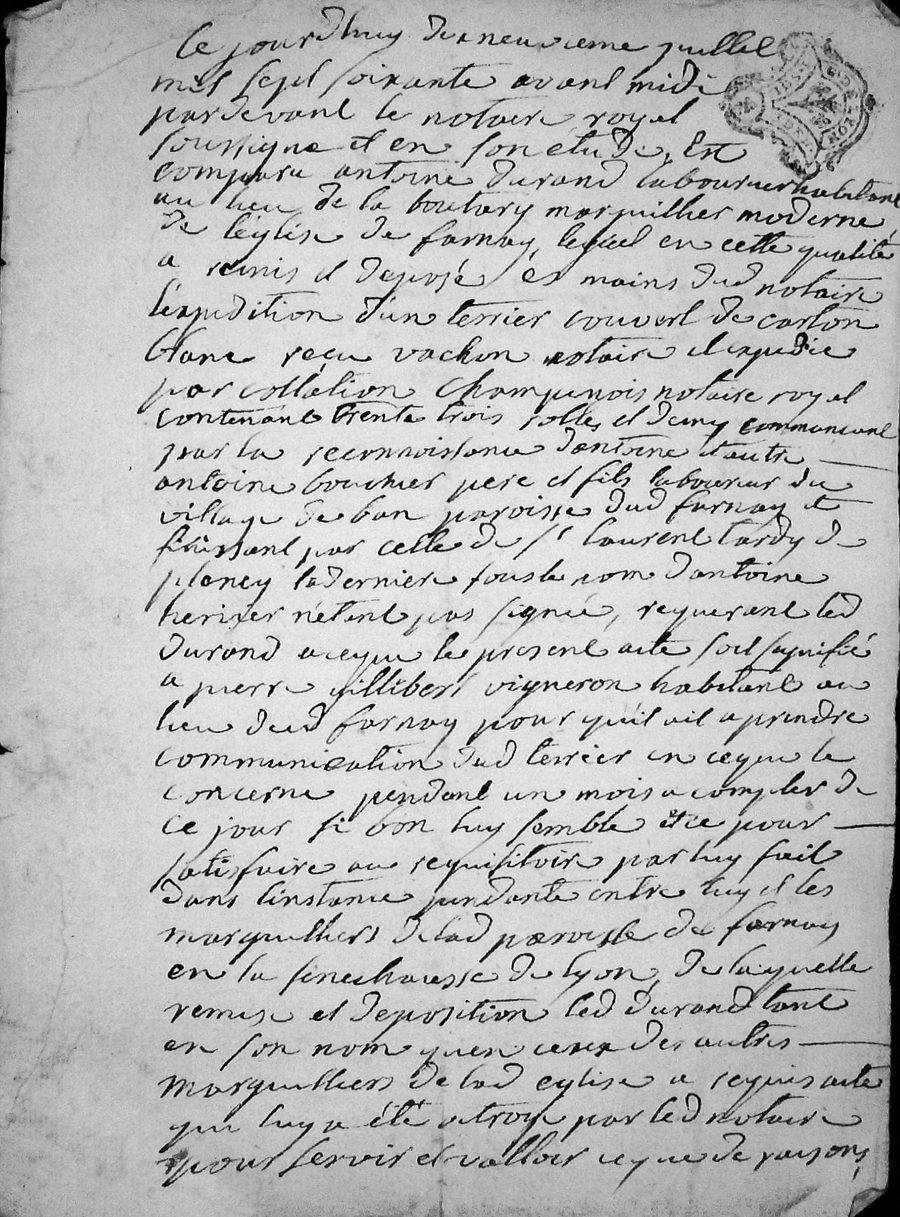 Ce jourdhuy dixneuvieme juillet
mil sept soixante avant midi
pardevant le notaire royal
soussigne et en son etude, Est
comparu antoine durand laboureur habitant
au lieu de la boutary marguillier moderne
de l'eglise de farnay, lequel en cette qualité
a remis et deposé es mains dud notaire
l'expedition d'un terrier couvert de carton
blanc reçu vachon notaire et expedie
par collation champenois notaire royal
contenant trente trois rolles et demy commencant
par la reconnoissance d'antoine et autre
antoine bouchier pere et fils laboureur du
village de ban paroisse dud farnay et
finissant par celle de st laurent tardy de
planey la derniere sous le nom d'antoine
herisser n'etant pas signée, requerant led
durand a ceque le present acte soit signifié
a pierre gillibert vigneron habitant au
lieu dud farnay pour qu'il ait a prendre
communication dud terrier en ceque le
concerne pendant un mois a compter de
ce jour si bon luy semble et ce pour
satisfaire au requisitoire par luy fait
dans l'instance pendante entre luy et les
marguilliers de lad paroisse de farnay
en la senechaussé de lyon, de laquelle
remise et deposition led durand tant
en son nom quen ceux des autres
marguilliers de lad eglise a requis acte
qui luy a été octroye par led notaire
pour servir et valloir ceque de raison,